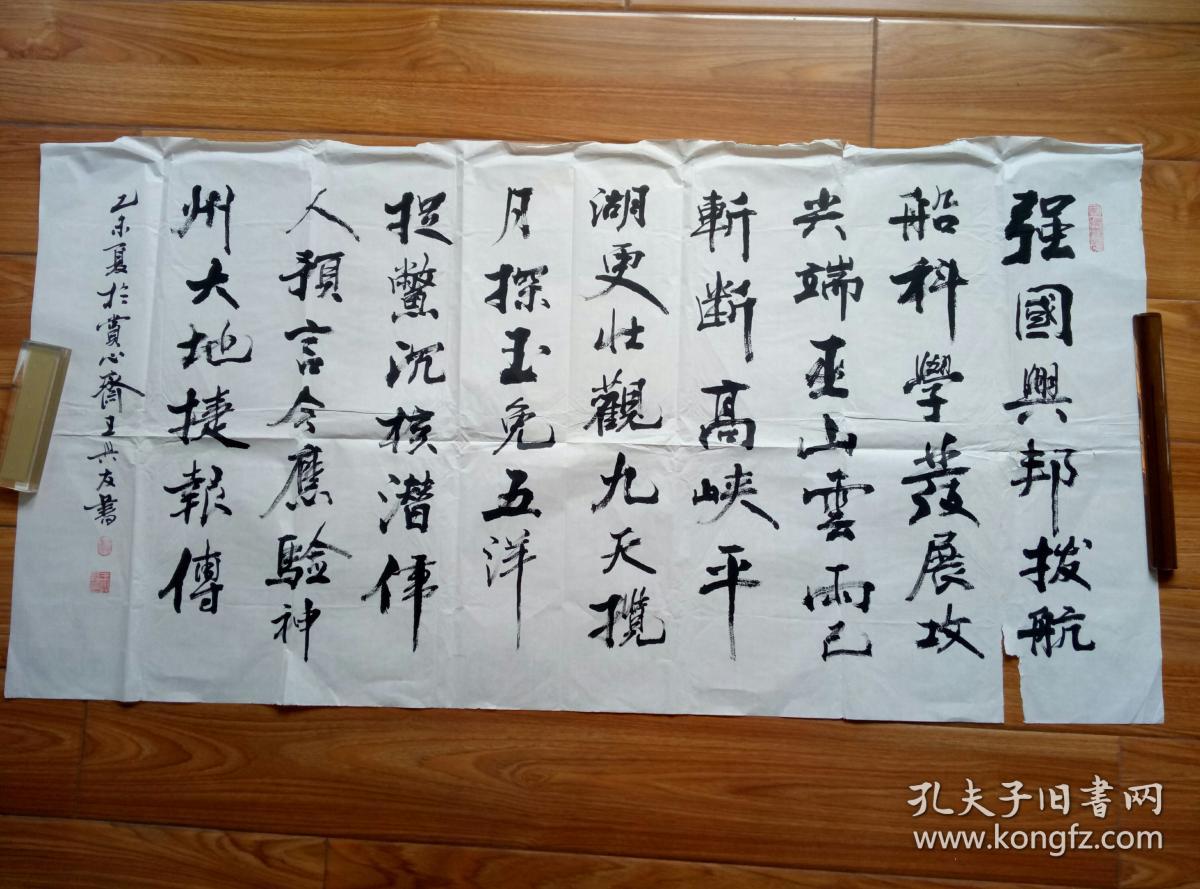 强國興邦拨航
船科學發展攻
尖端巫山雲雨已
斬断高峡平
湖更壮觀九天攬
月探玉兔五洋
捉鱉沉核潜伟
人預言今應驗神
州大地捷報傳
乙未夏於賞心齋王兴友書
孔夫子旧書网
www.kongfz.com